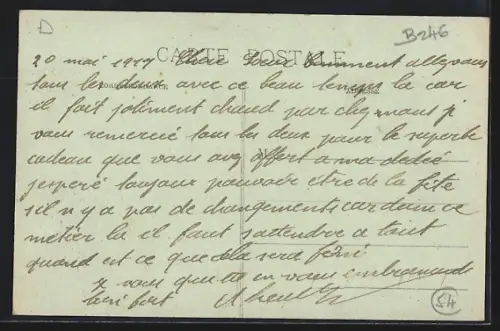 D
B 246
CARTE POSTALE
20 mai 1917 Chère Soeur Comment allez vous
tous les deux avec ce beau temps la car
il fait joliment chaud par chez nous je
vous remercie tous les deux pour le superbe
cadeau que vous avez offert a ma dédé
jesperé toujour pouvoir être de la fête
sil n y a pas de changements car dans ce
métier la il faut sattendre a tout
quand est ce que cela sera fini
je vous quitte en vous embrassant
bien fort
54